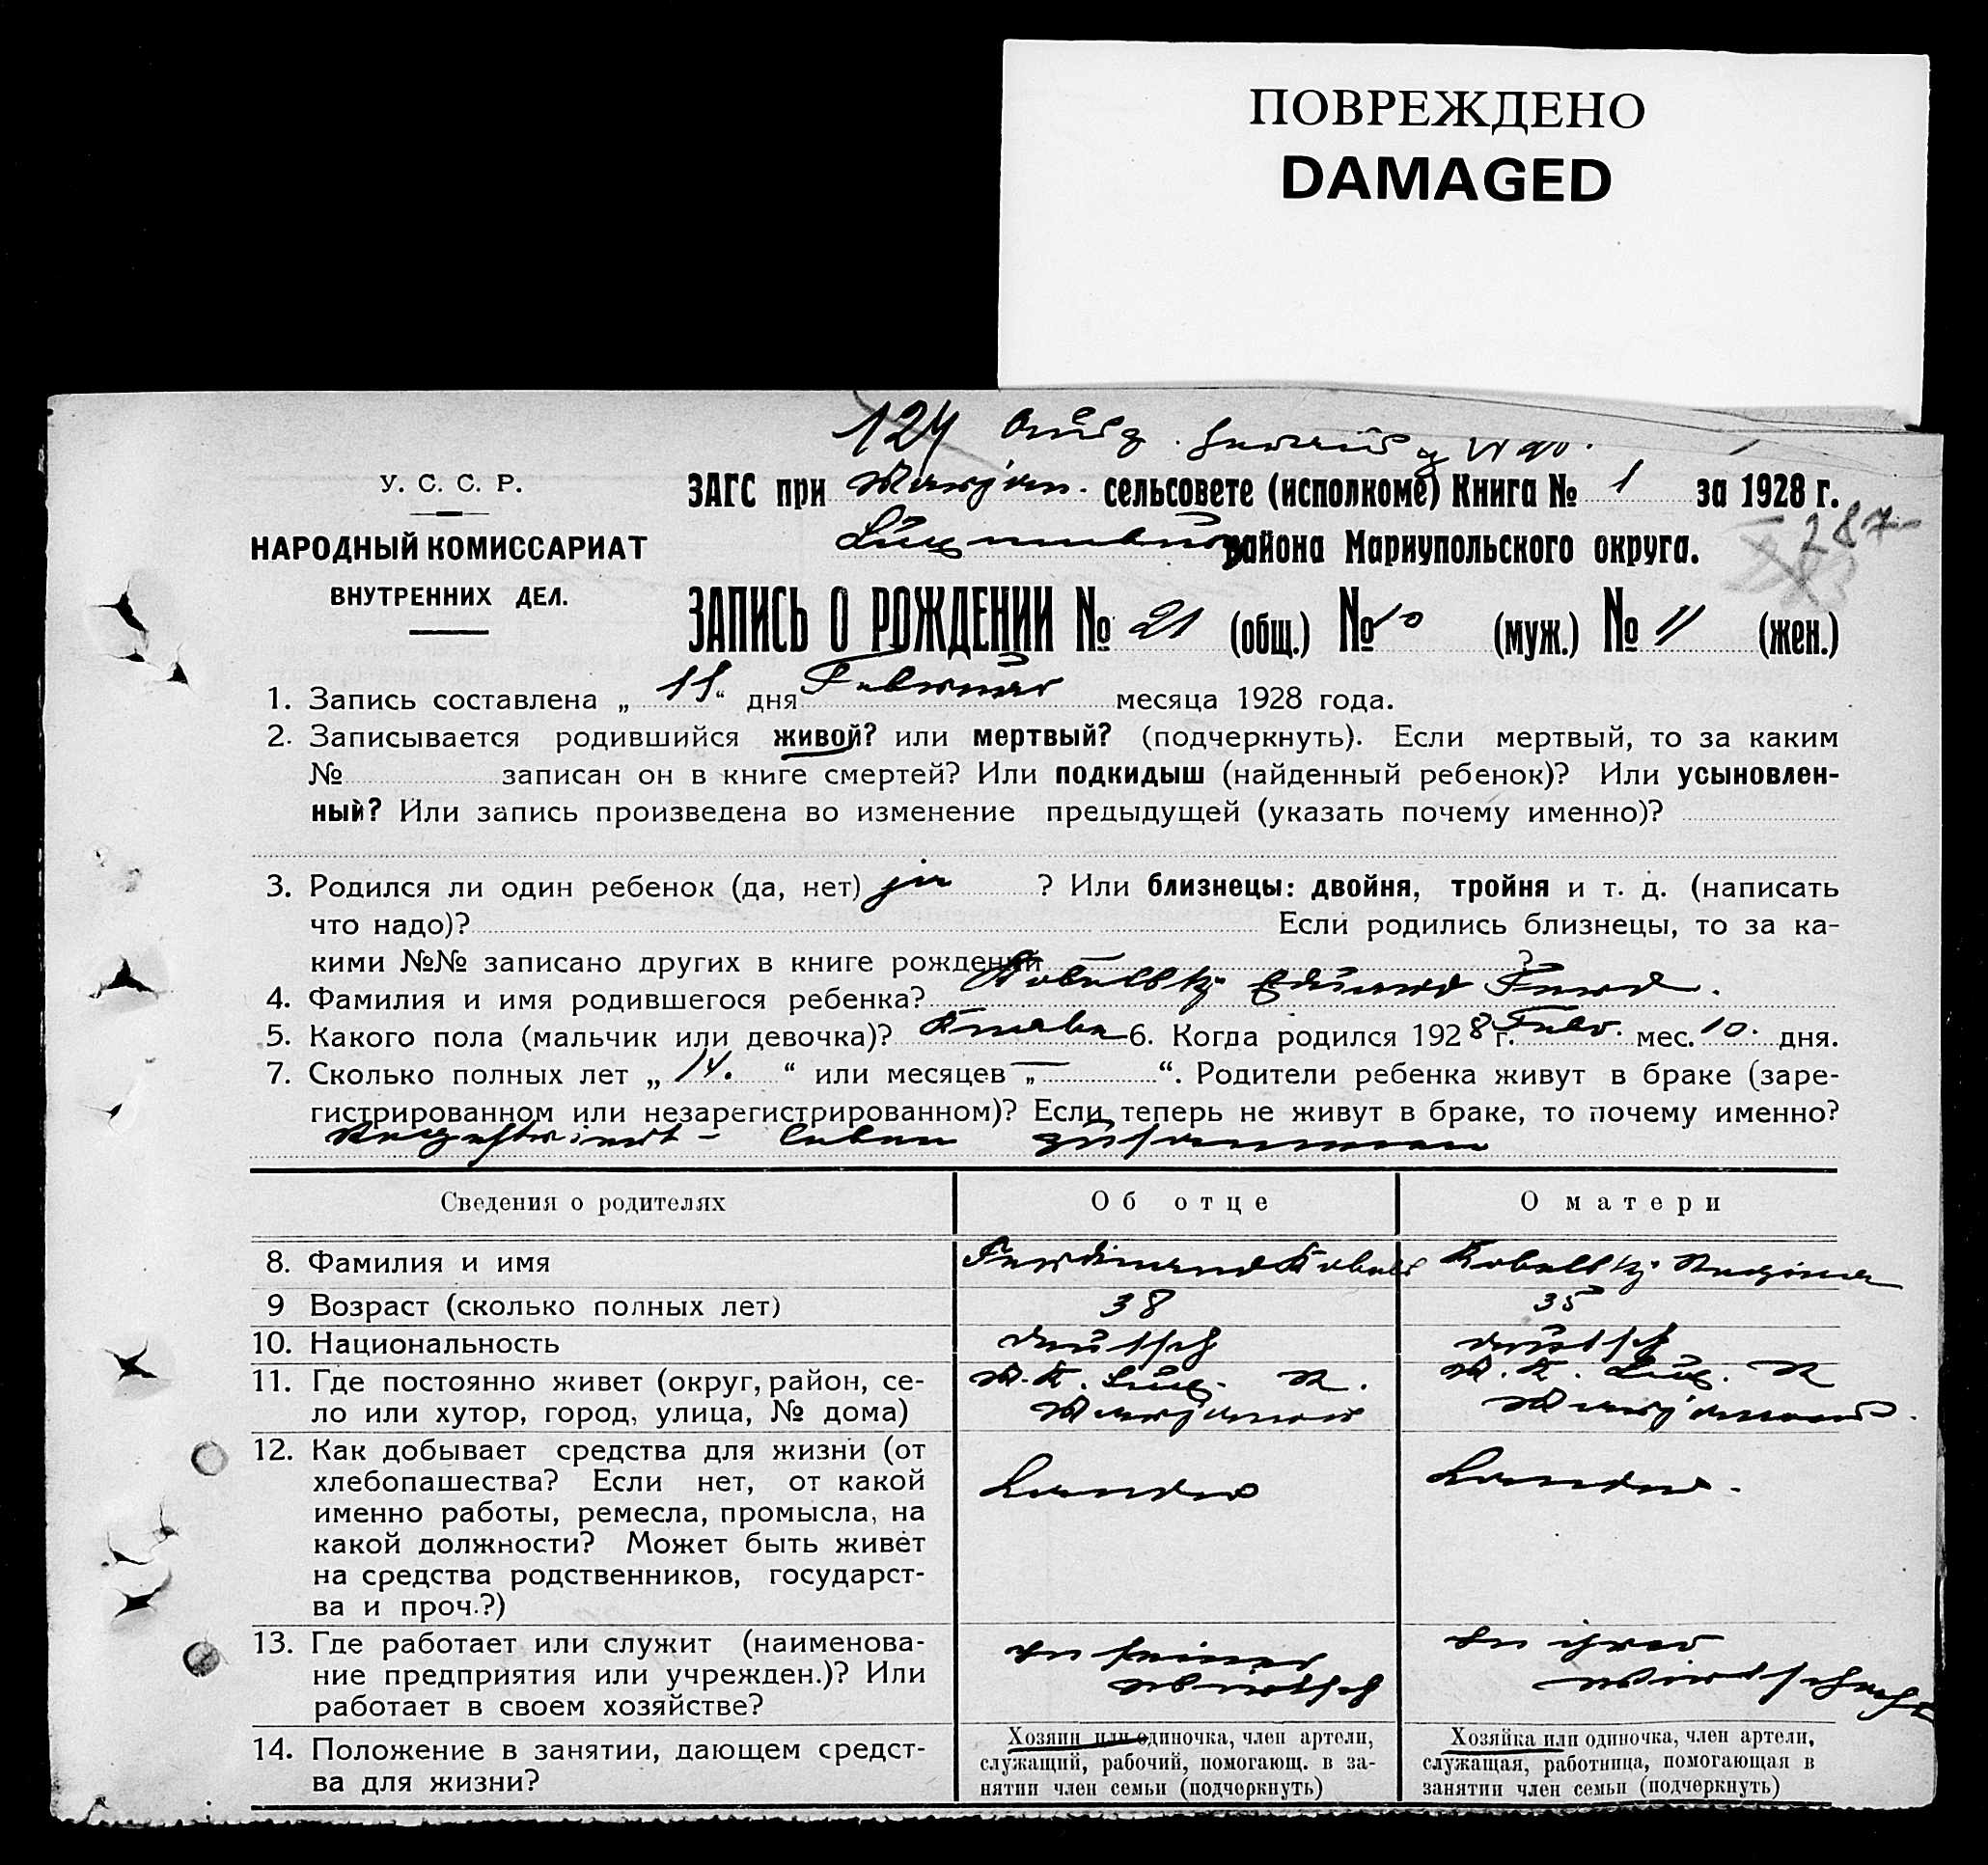 ПОВРЕЖДЕНО
DAMAGED
124
У. С. С. Р.
ЗАГС при Marjan. сельсовете (исполкоме) Книга № 1 за 1928 г.
287
НАРОДНЫЙ КОМИССАРИАТ
района Мариупольского округа.
ВНУТРЕННИХ ДЕЛ.
ЗАПИСЬ О РОЖДЕНИИ № 21 (общ.) № 10 (муж.) № 11 (жен.)
1. Запись составлена „ 11 “ дня Februar месяца 1928 года.
2. Записывается родившийся живой? или мертвый? (подчеркнуть). Если мертвый, то за каким
№ записан он в книге смертей? Или подкидыш (найденный ребенок)? Или усыновлен-
ный? Или запись произведена во изменение предыдущей (указать почему именно)?
3. Родился ли один ребенок (да, нет) ja ? Или близнецы: двойня, тройня и т. д. (написать
что надо)? Если родились близнецы, то за ка-
кими №№ записано других в книге рождений — ?
4. Фамилия и имя родившегося ребенка? Eduard Ferd.
5. Какого пола (мальчик или девочка)? Knabe 6. Когда родился 1928 г. Febr. мес. 10. дня.
7. Сколько полных лет „ 14. “ или месяцев „ — “. Родители ребенка живут в браке (заре-
гистрированном или незарегистрированном)? Если теперь не живут в браке, то почему именно?
Registriert – leben zusammen
Сведения о родителях
Об отце
О матери
8. Фамилия и имя
Ferdinand
Regina
9 Возраст (сколько полных лет)
38
35
10. Национальность
deutsch
deutsch
11. Где постоянно живет (округ, район, се-
ло или хутор, город, улица, № дома)
M. K. Lux. R.
Marjanow
M. K. Lux. R
Marjanow.
12. Как добывает средства для жизни (от
хлебопашества? Если нет, от какой
именно работы, ремесла, промысла, на
какой должности? Может быть живет
на средства родственников, государст-
ва и проч.?)
Landw
Landw.
13. Где работает или служит (наименова-
ние предприятия или учрежден.)? Или
работает в своем хозяйстве?
In seiner
Wirtsch
In ihrer
Wirtschaft
14. Положение в занятии, дающем средст-
ва для жизни?
Хозяин или одиночка, член артели,
служащий, рабочий, помогающ. в за-
нятии член семьи (подчеркнуть)
Хозяйка или одиночка, член артели,
служащая, работница, помогающая в
занятии член семьи (подчеркнуть)